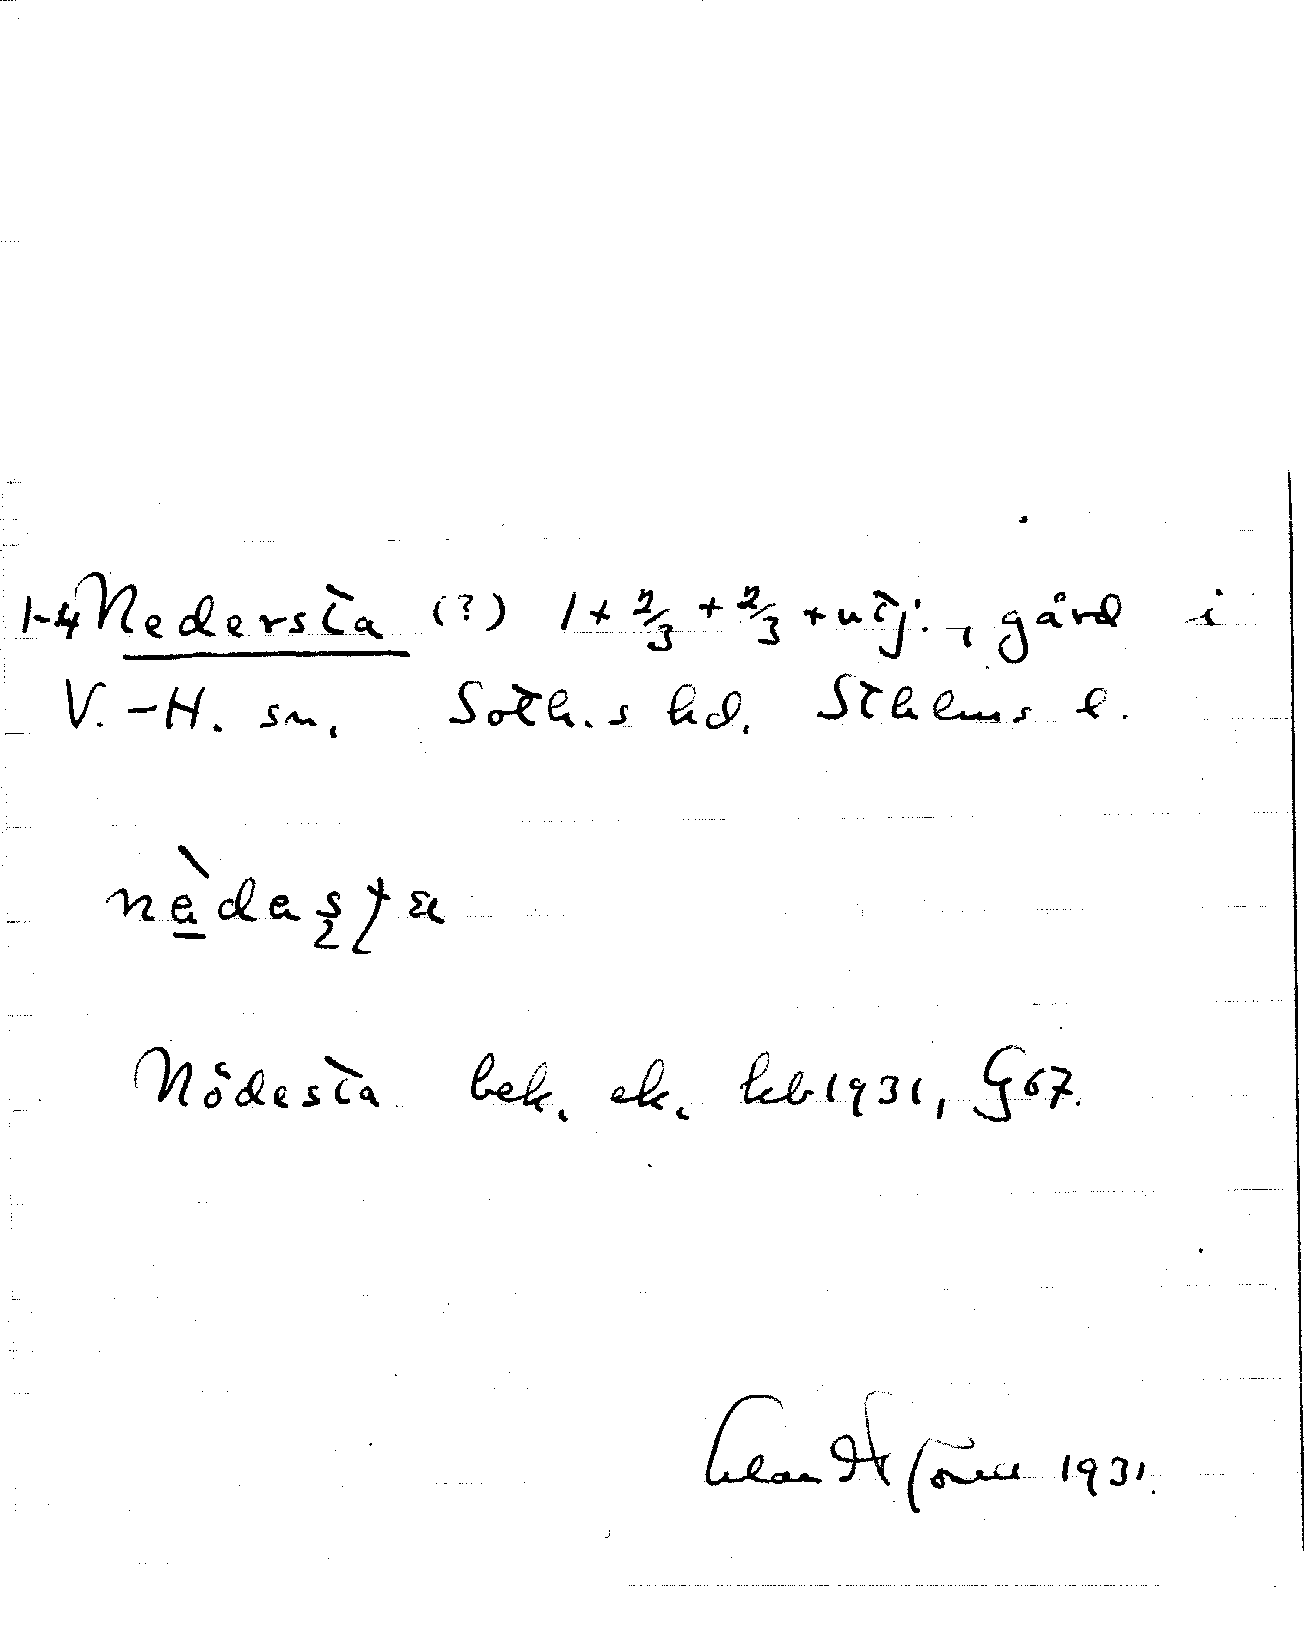 1-4 Nedersta (?) 1 + 2/3 + 2/3 + utj., gård i
V.-H. sn, Soth.s hd. Sthlms l.
Nödesta bek. ek. kb 1931, G 67.
1931.